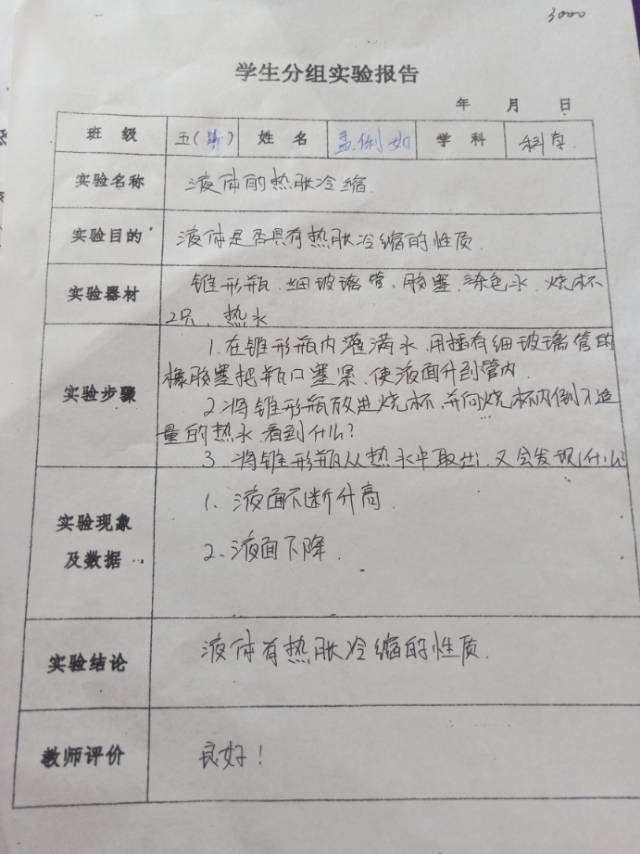 3000
学生分组实验报告
年 月 日
班 级 五( ) 姓 名 孟俐如 学 科 科学.
实验名称 液体的热胀冷缩.
实验目的 液体是否具有热胀冷缩的性质.
实验器材 锥形瓶.细玻璃管、胶塞.染色水.烧杯
2只、热水
实验步骤
1.在锥形瓶内灌满水.用插有细玻璃管的
橡胶塞把瓶口塞紧.使液面升到管内.
2.将锥形瓶放进烧杯.并向烧杯内倒入适
量的热水.看到什么?
3.将锥形瓶从热水中取出.又会发现什么?
实验现象
及数据
1.液面不断升高
2.液面下降.
实验结论 液体有热胀冷缩的性质.
教师评价 良好!